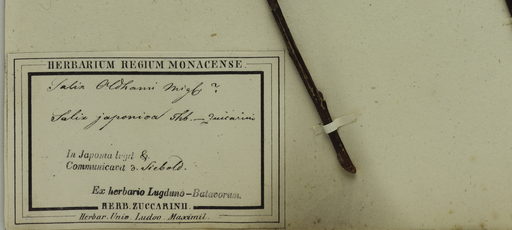 HERBARIUM REGIUM MONACENSE.
Salix Oldhami Miq ?
Salix japonica Thb. — Zuccarini
In Japonia legit &
Communicavit v. Siebold.
Ex herbario Lugduno-Batavorum.
HERB. ZUCCARINII.
Herbar. Univ. Ludov. Maximil.